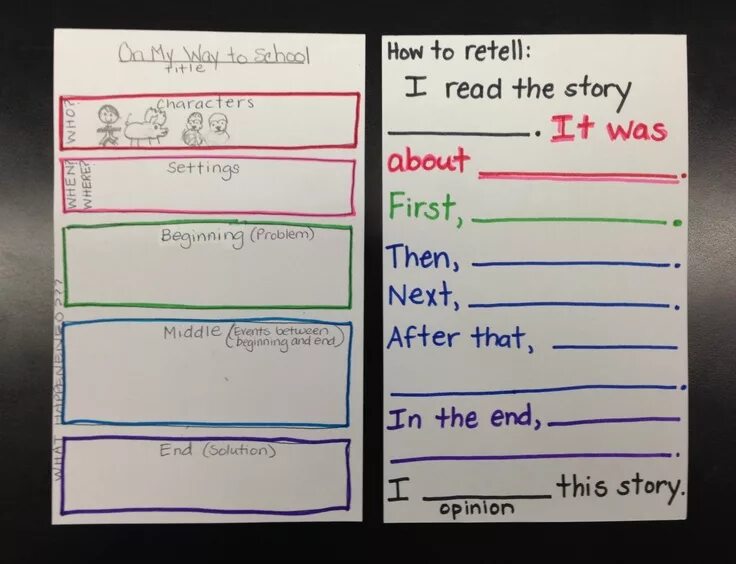 On My Way to School
Title
WHO?
Characters
WHEN?
WHERE?
Settings
Beginning (Problem)
Middle (Events between
beginning and end)
End (Solution)
WHAT HAPPENENED???
How to retell:
I read the story
__________. It was
about __________.
First, __________.
Then, __________.
Next, __________.
After that, __________
__________.
In the end, __________
__________.
I __________ this story.
opinion